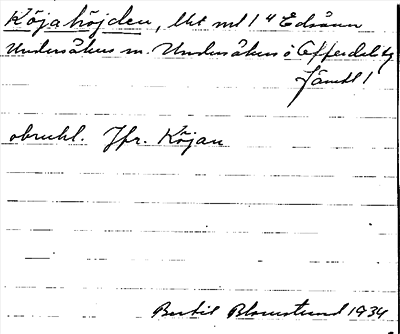 Köjahöjden, lht nl 1 Edsåsen
Undersåkers sn. Undersåkers o Offerdals tg
Jämtl.
obruhl. Jfr. Köjan
Bertil Blomstrand 1934